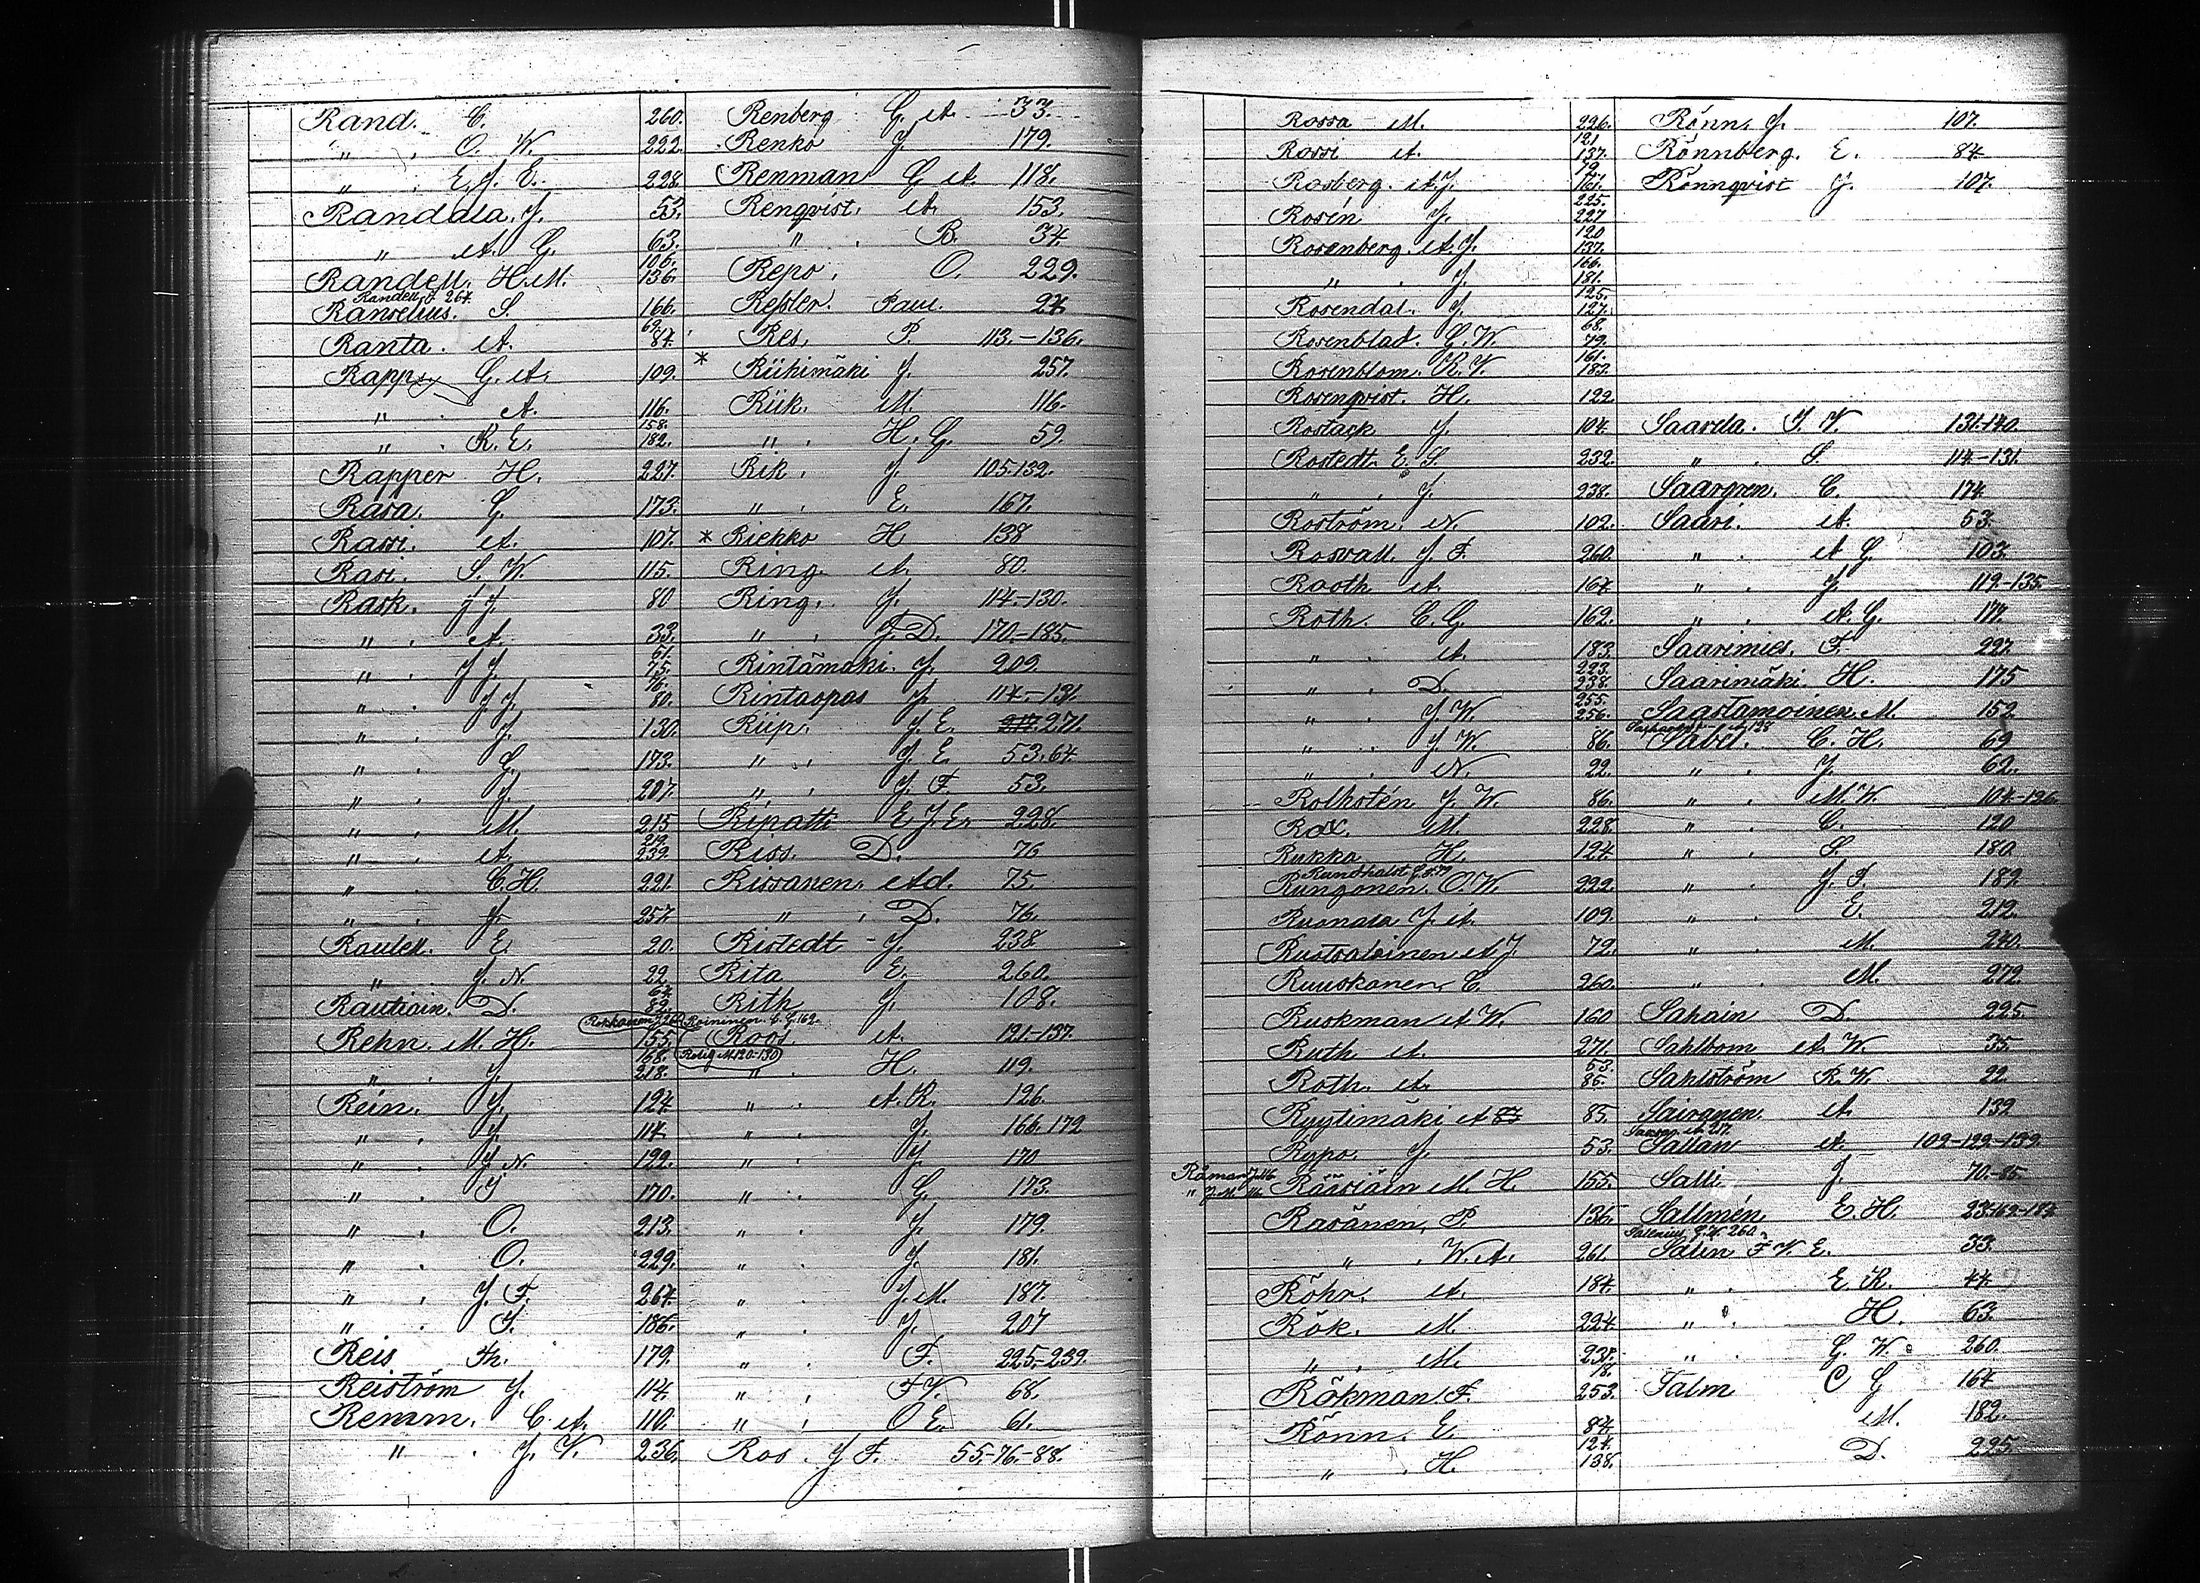 Rand. C. 260.
" . O. W. 222.
" . E. J. E. 228.
Randala. J. 53.
" A. G. 63.
106.
Randell. H. M. 136.
Randell J. 264.
Ranselius. S. 166.
69.
Ranta. A. 84.
Rapp. G. A. 109.
" . A. 116.
158.
" . K. E. 182.
Rapper H. 227.
Rasa. G. 173.
Rassi. A. 107.
Rasi. S. W. 115.
Rask. J. J. 80
" . A. 33.
61.
" . J. J. 75.
76.
" . J. J. 80.
" . J. 130.
" . G. 193.
" . J. 207.
" . M. 215
219.
" . A. 239.
" . C. H. 221.
" . J. 257.
Raulell. E. 20.
" . J. N. 22.
62.
Rautiain. D. 82.
Rehn. M. H. 155.
168.
" . J. 218.
Rein. J. 124.
" . J. 114.
" . J. N. 122.
" . J 170.
" . O. 213.
" . O. 229.
" . J. F. 264.
" . S. 186.
Reis Th. 179.
Reiström J. 114.
Remm. C. A. 110.
" . J. V. 236.
Renberg G. A. 33.
Renko J 179.
Renman G A. 118.
Renqvist. A. 153.
" . B. 34.
Repo. O. 229.
Resler. Paul. 24
Res. P. 113.-136.
* Riihimäki J. 257.
Riik. M. 116.
" . H. G. 59.
Rik. J 105-132.
" . E. 167.
* Riekko H 138
Ring. A. 80.
Ring. J. 114.-130.
" . J. D. 170.-185.
Rintämäki. J. 209.
Rintaspas J 114.-131.
Riip. J. E. 271.
" . J. E. 53.64.
" . J. F. 53.
Ripatti E J Er 228.
Riss. D. 76
Rissanen. Ad. 75.
" . D. 76.
Ristedt J. 238
Rita E. 260.
Rith J. 108.
Roininen. C. G. 162.
Roos A. 121-137.
Rosig M. 120-130
" . H. 119.
" . A. R. 126.
" . J. 166. 172
" . J. 170
" . G. 173.
" . J. 179.
" . J. 181.
" . J. M. 187.
" . J. 207
" . F. 225.-239.
" . F. V. 68.
" . O E. 61.
Ros. J F. 55.-76.-88.
Rossa M. 226.
121.
Rossi A. 137.
79.
Rosberg. A. J. 161.
225.
Rosén J. 227
120
Rosenberg. A. J. 137.
166.
" . J. 181.
125.
Rosendal. J. 127.
68.
Rosenblad. C. W. 79.
161.
Rosenblom. K. V. 183.
Rosenqvist. H. 122.
Rostack J. 104.
Rostedt E. S. 232.
" . J. 238.
Roström. N. 102.
Rosvall. J. F. 260.
Rooth A. 164.
Roth. C. G. 162.
" . A. 183.
223.
" . D. 238.
255.
" . J. W. 256.
" . J W. 86.
" . N. 22.
Rolhstén J. W. 86.
Rox. M. 228.
Rukka H. 124.
Rungonen. O. W. 222.
Ruonala J. A. 109.
Rustvaloinen A J. 72.
Ruuskanen C. 260.
Ruskman A W. 160
Ruth A. 271.
53.
Roth. A. 86.
Ryytimäki A 85.
Rypo. J. 53.
Räisiäin M. H. 155.
Rasänen P. 136.
" . W. A. 261.
Röhr. A. 184.
Rök. M. 224.
" . M. 237.
18.
Rökman. F. 253.
Rönn. E. 84.
124.
" . H. 138.
Rönn. J. 107.
Rönnberg. E. 84.
Rönnqvist J. 107.
Saarela. J. V. 131-140.
" . S. 114-131.
Saargren. C. 174
Saari. A. 53.
" . A G. 103.
" . J. 119.-135.
" . A. G. 177.
Saarimies. F. 227.
Saarimäki. H. 175
Sagstamoinen. M. 152
Sabel. C. H. 69
" . J. 62.
" . M. W. 104.-126.
" . C. 120
" . S. 180.
" . J. F. 189.
" . E. 212.
" . M. 240.
" . M. 272.
Sahain D. 225
Sahlbom A. W. 35.
Sahlström R. W. 22.
Sairanen. A. 139
Sallan A. 102-122-132.
Salli J. 70.-85.
Sallmén E. H. 23-162-184
Sallenius G. W. 260.
Salin F V. E. 33.
" . E. R. 44.
" . H. 63.
" . G. W. 260.
Salm C G 164
M. 182.
D. 225.